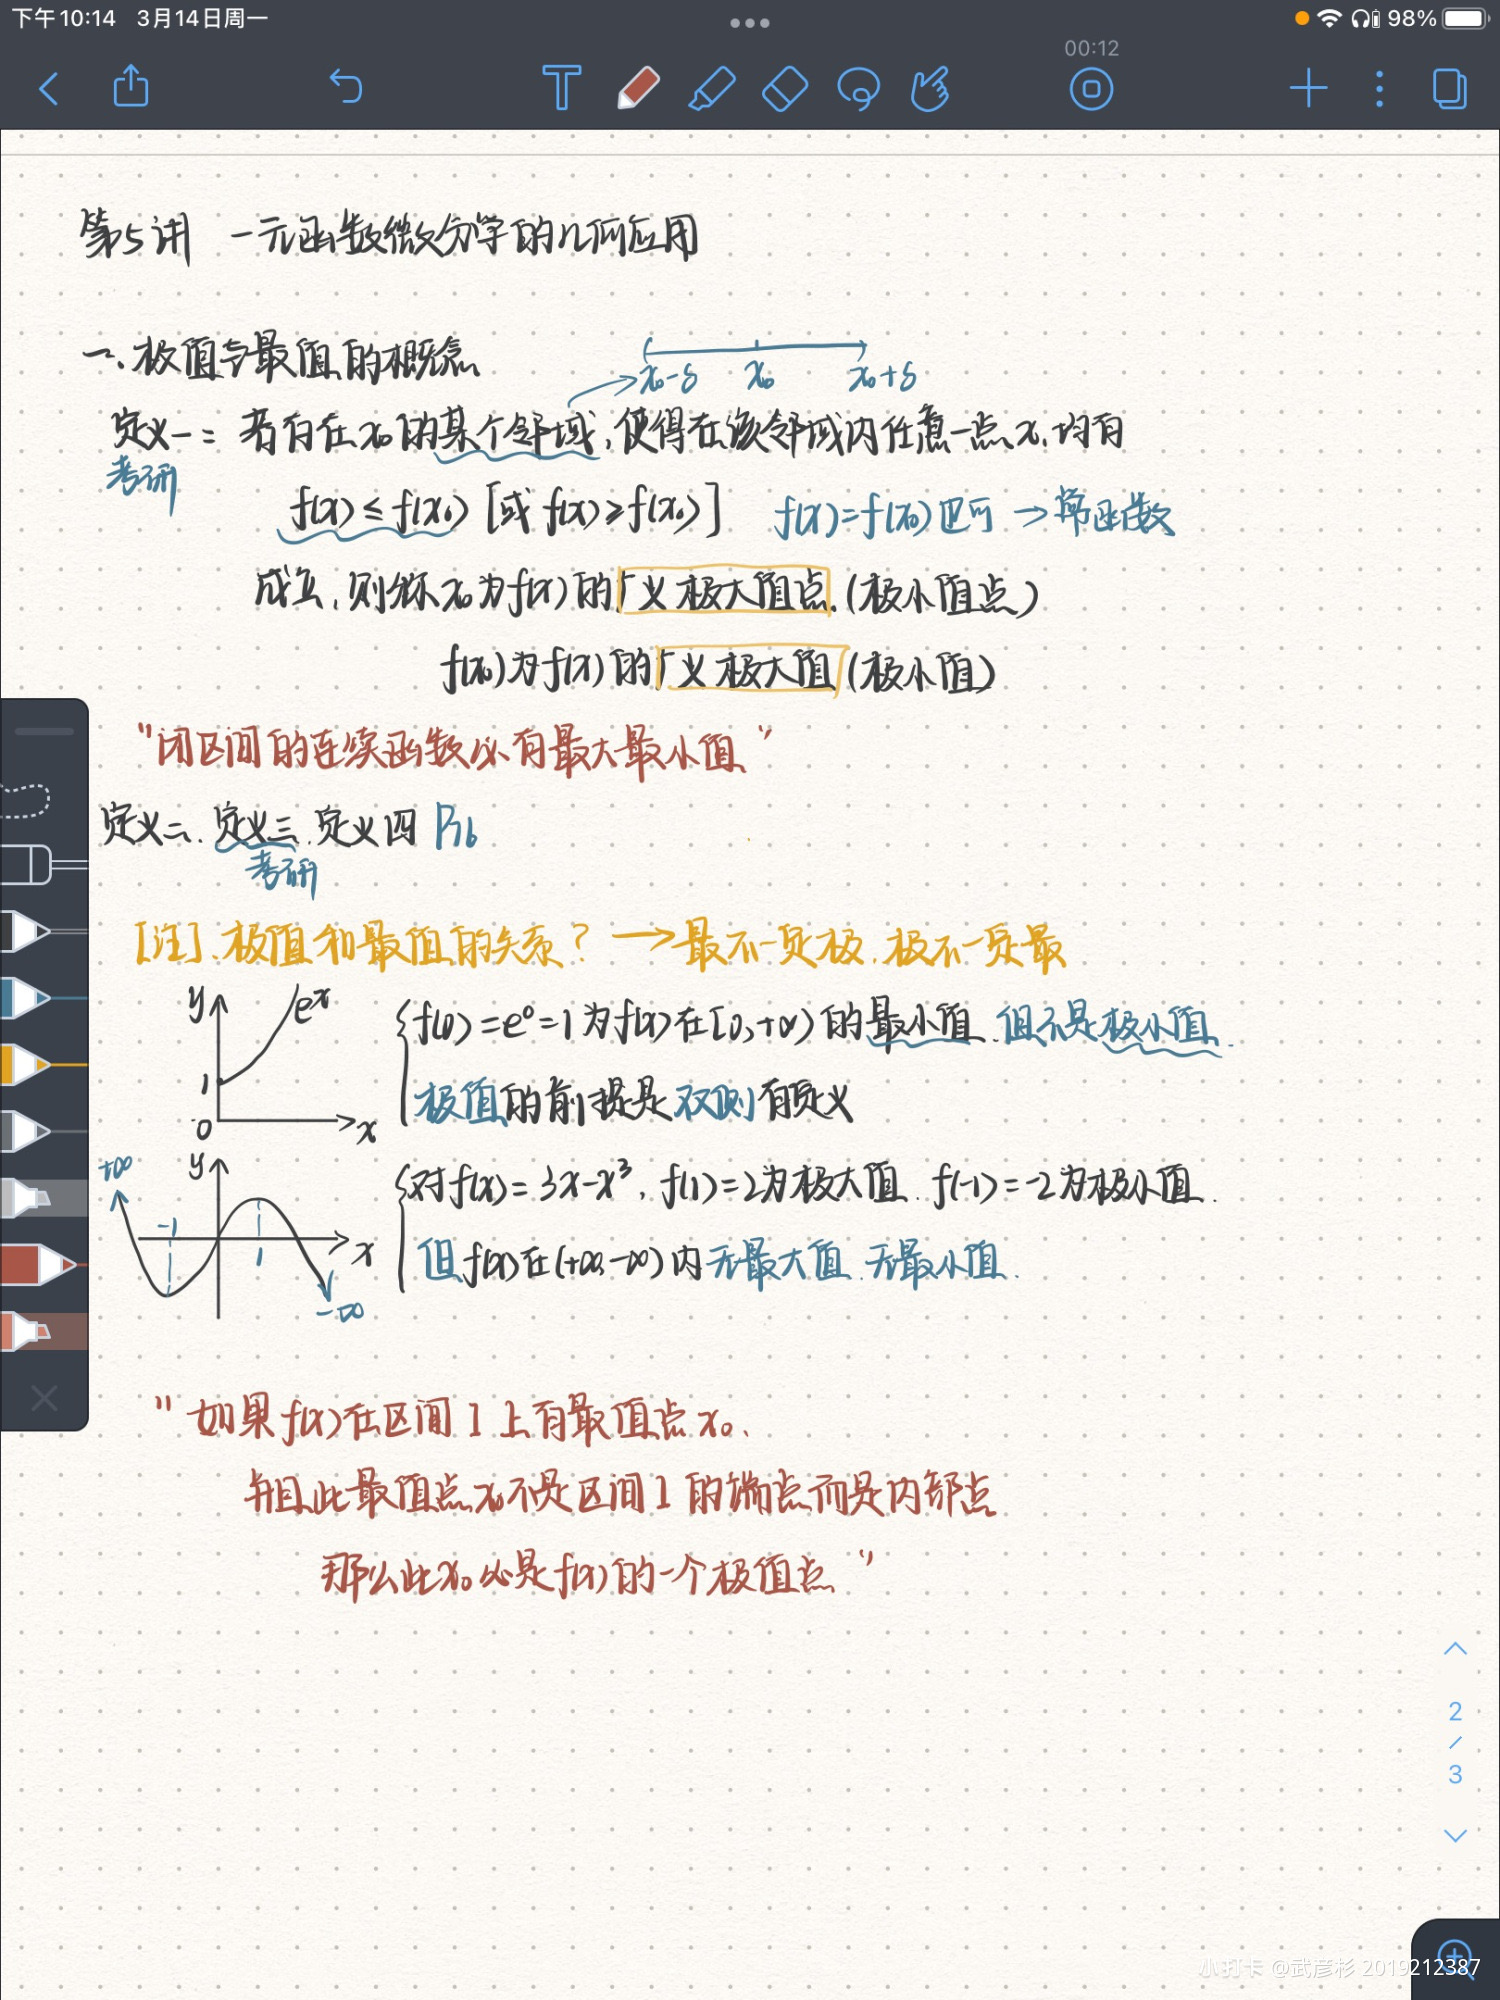 下午10:14 3月14日周一
98%
00:12
第5讲 一元函数微分学的几何应用
一、极值与最值的概念
x₀-δ x₀ x₀+δ
定义一: 若存在x₀的某个邻域,使得在该邻域内任意一点x,均有
考研
f(x)≤f(x₀) [或f(x)≥f(x₀)] f(x)=f(x₀)也可→常函数
成立,则称x₀为f(x)的广义极大值点(极小值点)
f(x₀)为f(x)的广义极大值(极小值)
"闭区间的连续函数必有最大最小值"
定义二、定义三、定义四
考研
[注].极值和最值的关系?→最不一定极,极不一定最
y eˣ
1
0 x
{f(0)=e⁰=1为f(x)在[0,+∞)的最小值,但不是极小值.
极值的前提是双侧有定义
+∞ y
-1 1 x
-∞
{对f(x)=3x-x³,f(1)=2为极大值,f(-1)=-2为极小值.
但f(x)在(+∞,-∞)内无最大值,无最小值.
"如果f(x)在区间I上有最值点x₀,
并且此最值点x₀不是区间I的端点而是内部点
那么此x₀必是f(x)的一个极值点"
2
/
3
小打卡 @武彦杉 2019212387